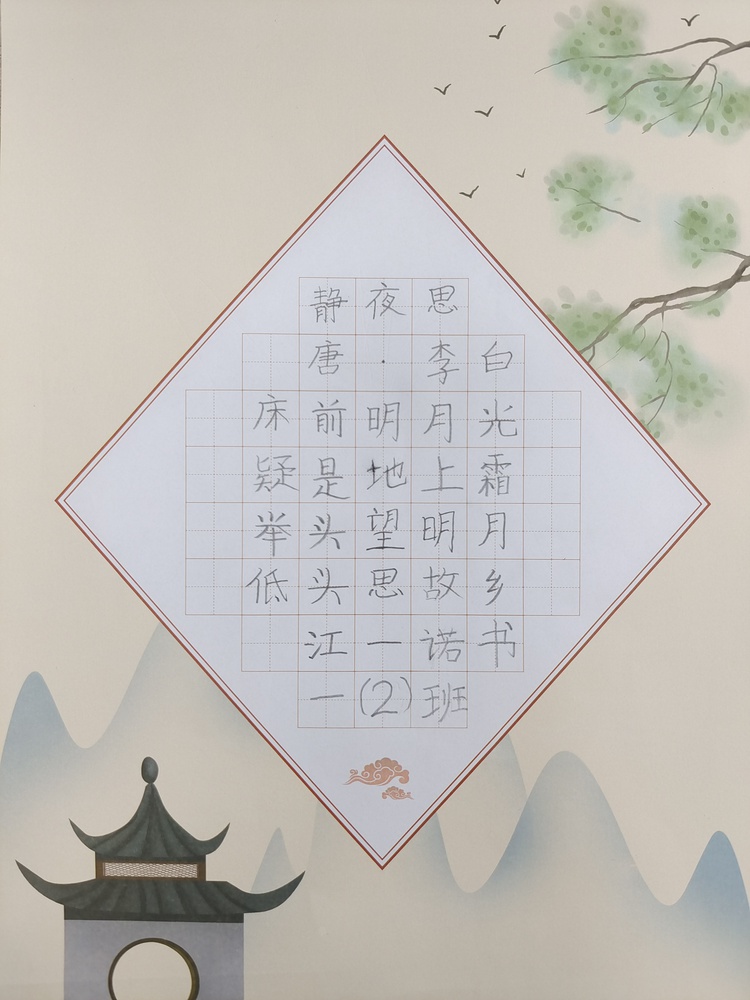 静夜思
唐·李白
床前明月光
疑是地上霜
举头望明月
低头思故乡
江一诺书
一(2)班